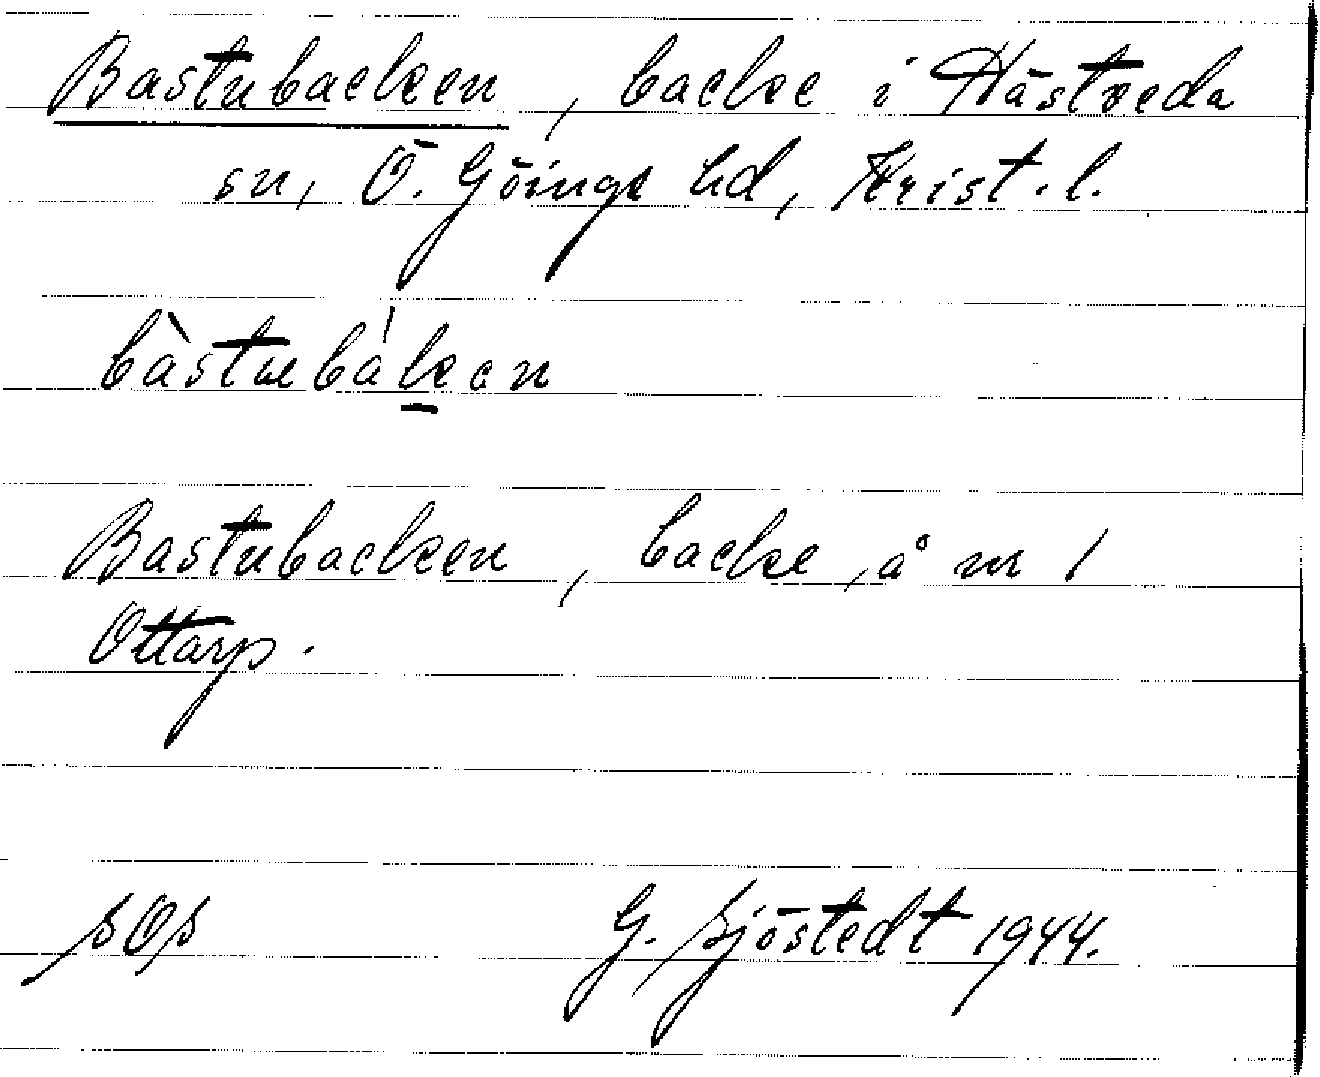 Bastubacken, backe i Hästveda
sn, Ö. Göinge hd, Krist. l.
bàstubákan
Bastubacken, backe, å nr 1
Ottarp.
SOS G. Sjöstedt 1944.